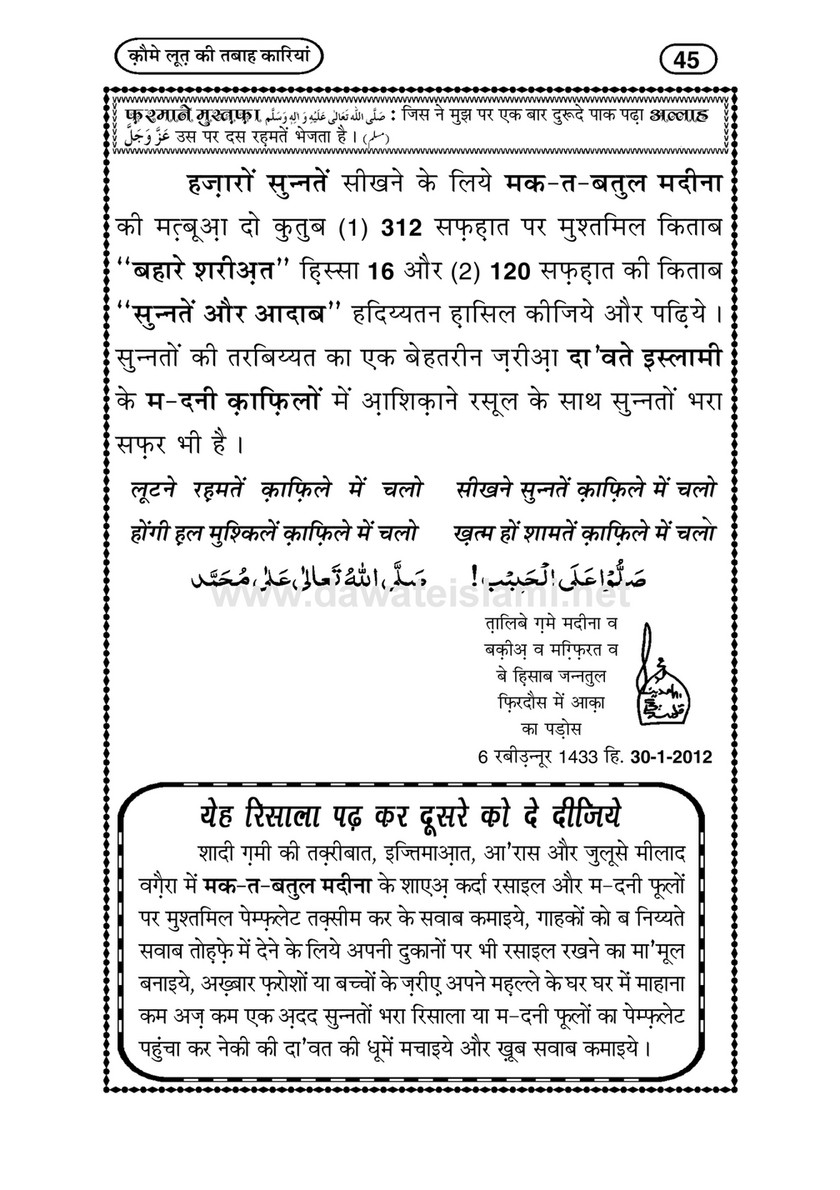 क़ौमे लूत़ की तबाह कारियां
45
फ़रमाने मुस्तफ़ा صَلَّى اللهُ تَعَالٰى عَلَيْهِ وَاٰلِهٖ وَسَلَّم : जिस ने मुझ पर एक बार दुरूदे पाक पढ़ा अल्लाह
عَزَّوَجَلَّ उस पर दस रह़मतें भेजता है । (مسلم)
हज़ारों सुन्नतें सीखने के लिये मक-त-बतुल मदीना
की मत़्बूआ़ दो कुतुब (1) 312 सफ़ह़ात पर मुश्तमिल किताब
“बहारे शरीअ़त” हि़स्सा 16 और (2) 120 सफ़ह़ात की किताब
“सुन्नतें और आदाब” हदिय्यतन ह़ासिल कीजिये और पढ़िये ।
सुन्नतों की तरबिय्यत का एक बेहतरीन ज़रीआ़ दा’वते इस्लामी
के म-दनी क़ाफ़िलों में आ़शिक़ाने रसूल के साथ सुन्नतों भरा
सफ़र भी है ।
लूटने रह़मतें क़ाफ़िले में चलो सीखने सुन्नतें क़ाफ़िले में चलो
होंगी ह़ल मुश्किलें क़ाफ़िले में चलो ख़त्म हों शामतें क़ाफ़िले में चलो
صَلُّوْا عَلَى الْحَبِيْب! صَلَّى اللهُ تَعَالٰى عَلٰى مُحَمَّد
www.dawateislami.net
त़ालिबे ग़मे मदीना व
बक़ीअ़ व मग़्फ़िरत व
बे ह़िसाब जन्नतुल
फ़िरदौस में आक़ा
का पड़ोस
6 रबीउ़न्नूर 1433 हि. 30-1-2012
येह रिसाला पढ़ कर दूसरे को दे दीजिये
शादी ग़मी की तक़्रीबात, इज्तिमाआ़त, आ’रास और जुलूसे मीलाद
वग़ैरा में मक-त-बतुल मदीना के शाएअ़ कर्दा रसाइल और म-दनी फूलों
पर मुश्तमिल पेम्फ़्लेट तक़्सीम कर के सवाब कमाइये, गाहकों को ब निय्यते
सवाब तोह़फ़े में देने के लिये अपनी दुकानों पर भी रसाइल रखने का मा’मूल
बनाइये, अख़्बार फ़रोशों या बच्चों के ज़रीए़ अपने मह़ल्ले के घर घर में माहाना
कम अज़ कम एक अ़दद सुन्नतों भरा रिसाला या म-दनी फूलों का पेम्फ़्लेट
पहुंचा कर नेकी की दा’वत की धूमें मचाइये और ख़ूब सवाब कमाइये ।